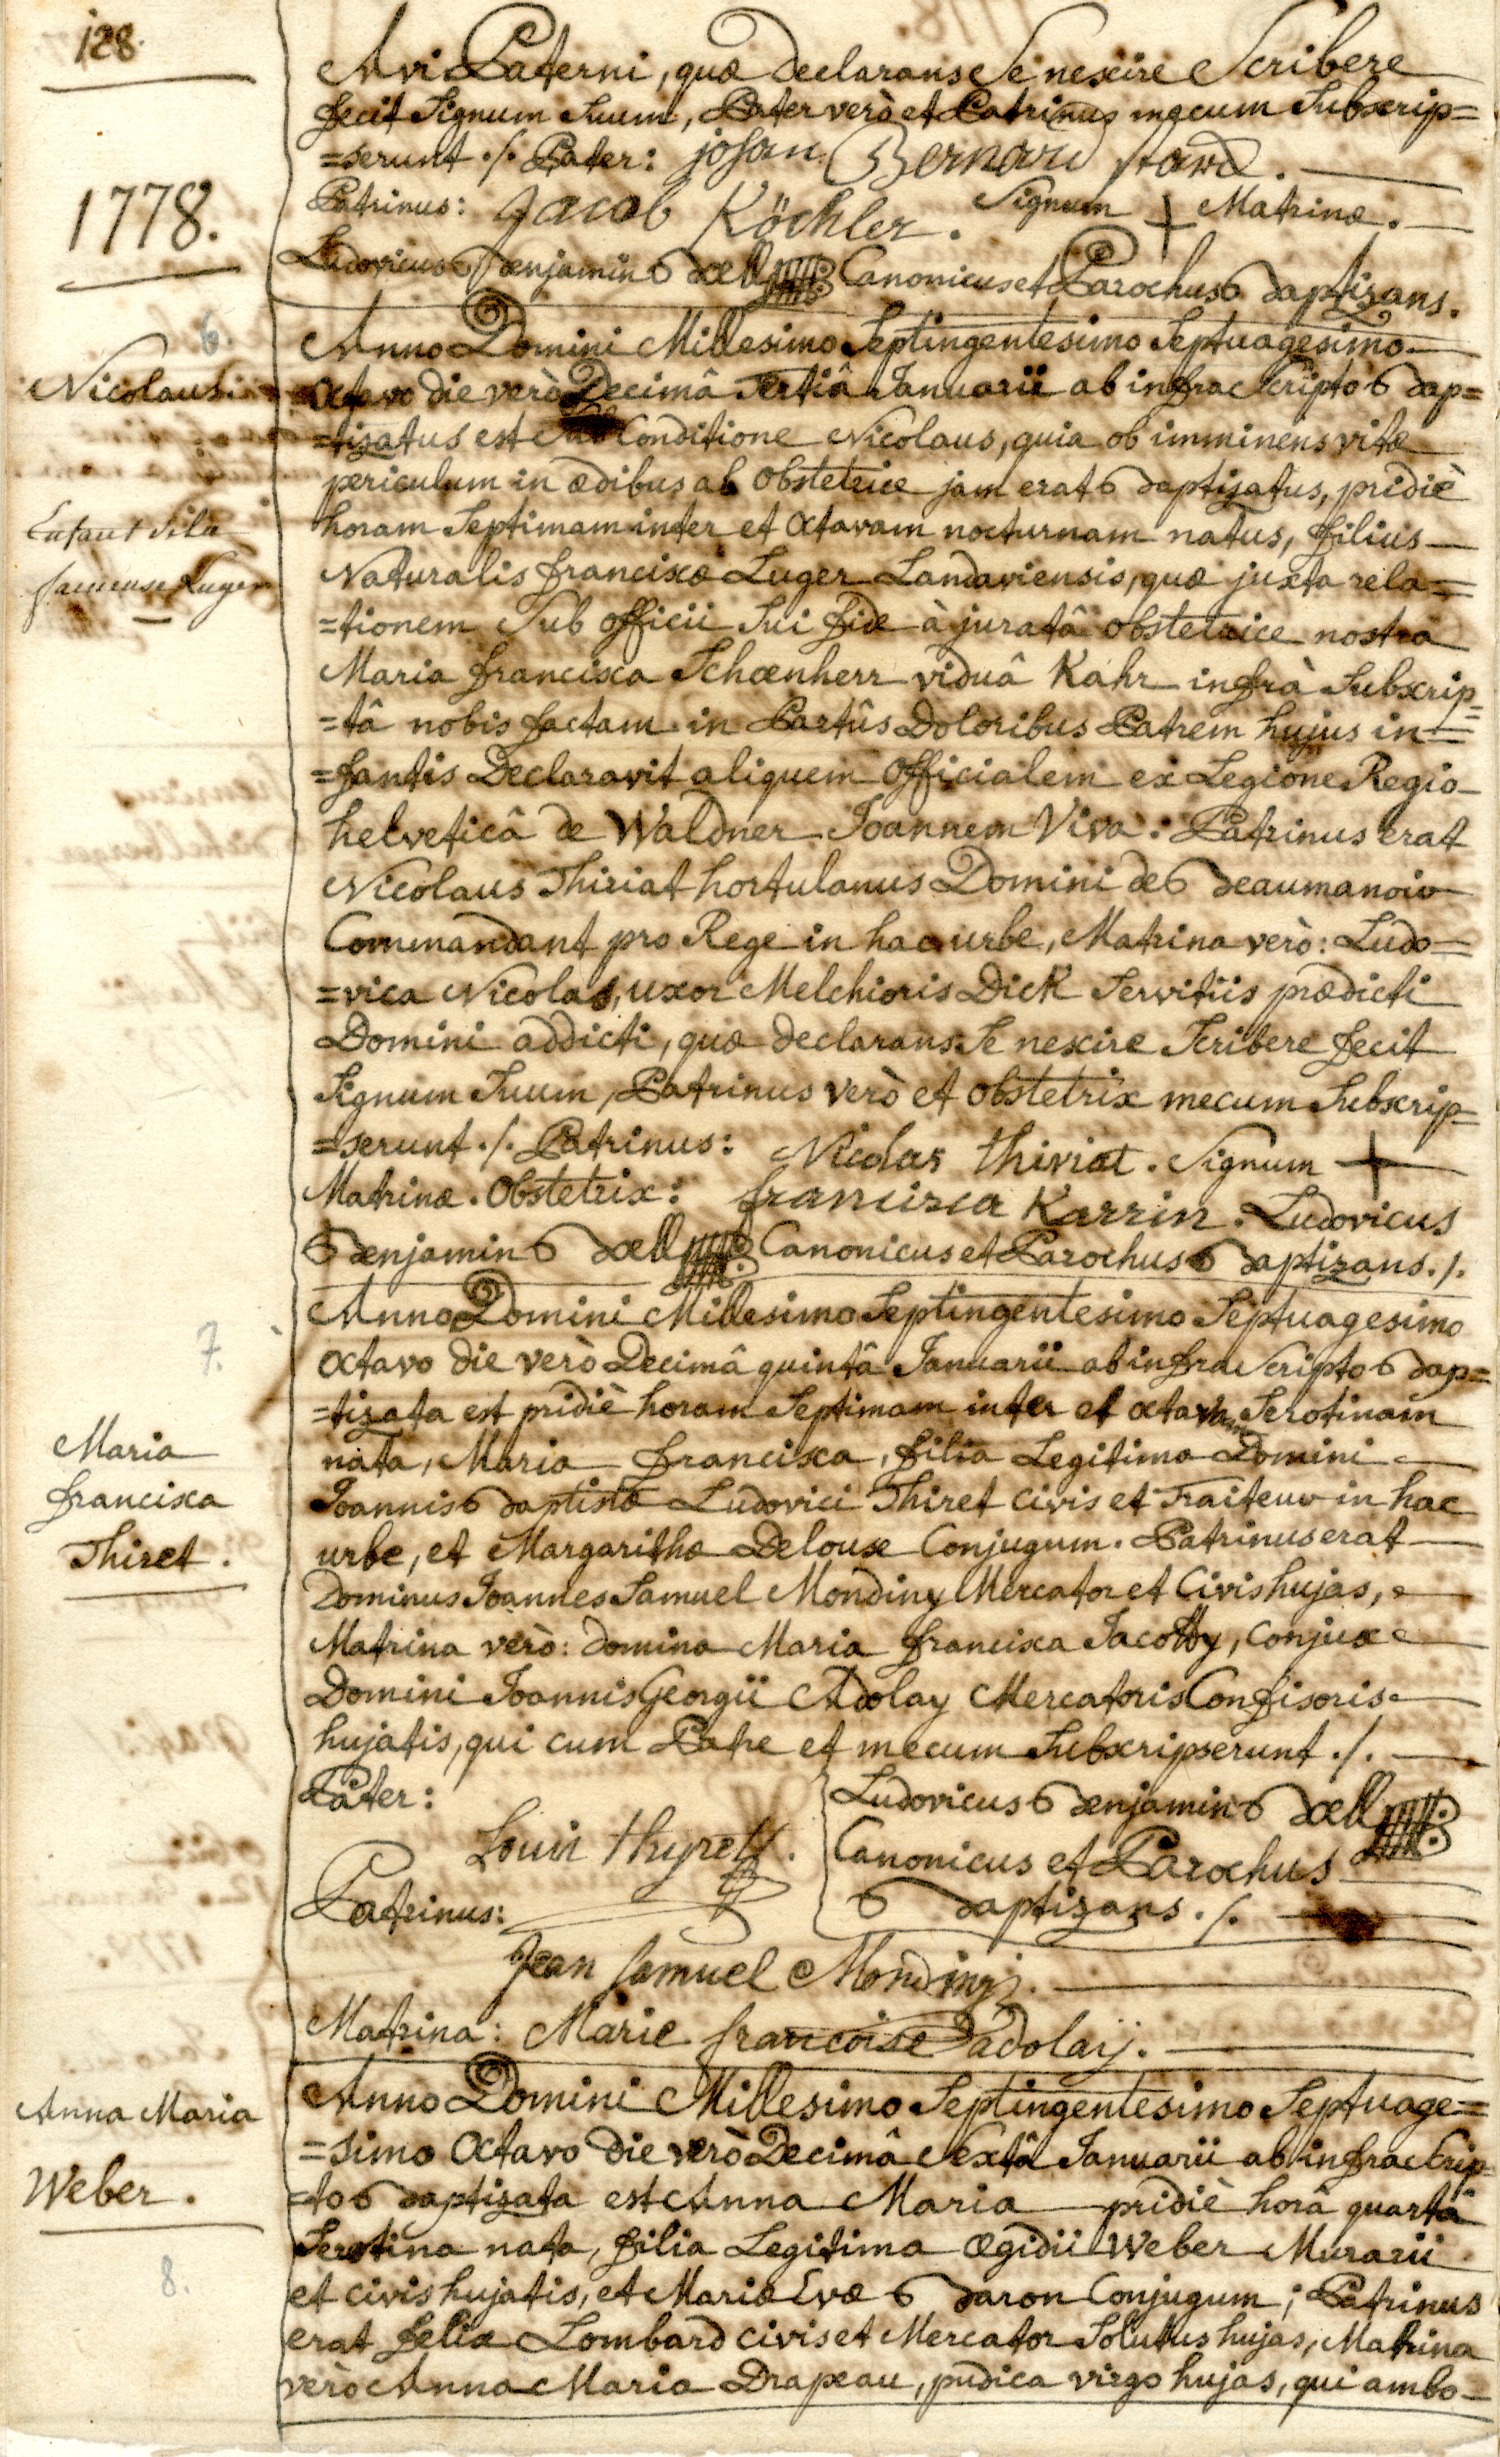 128.
Avi Paterni, quæ declarans Se nescire Scribere
fecit Signum Suum, Pater verò et Patrinus mecum Subscrip=
=serunt ./. Pater: johan Bernard
1778.
Patrinus: Jacob Köchler. Signum + Matrinæ.
Ludovicus Benjamin Bœll Canonicus et Parochus Baptizans.
6.
Anno Domini Millesimo Septingentesimo Septuagesimo
Nicolaus
octavo die verò Decimâ Tertiâ Januarii ab infra Scripto Bap=
=tizatus est Sub Conditione Nicolaus, quia ob imminens vitæ
periculum in ædibus ab obstetrice jam erat Baptizatus, pridiè
Enfant de la
horam Septimam inter et octavam nocturnam natus, filius
francense Luger
Naturalis franciscæ Luger Landaviensis, quæ juxta rela=
=tionem Sub officii Sui fide à juratâ obstetrice nostra
Maria francisca Schœnherr viduâ Kahr infrà Subscrip=
=tâ nobis factam in Partûs Doloribus Patrem hujus in=
=fantis Declaravit aliquem officialem ex Legione Regio
helveticâ de Waldner Joannem Viva: Patrinus erat
Nicolaus Thiriat hortulanus Domini de Beaumanoir
Commandant pro Rege in hac urbe, Matrina verò: Ludo=
=vica Nicolas, uxor Melchioris Dick Servitiis prædicti
Domini addicti, quæ declarans Se nescire Scribere fecit
Signum Suum, Patrinus verò et obstetrix mecum Subscrip=
=serunt ./. Patrinus: Nicolas thiriat. Signum +
Matrinæ. Obstetrix: francisca Karrin. Ludovicus
Benjamin Bœll Canonicus et Parochus Baptizans ./.
Anno Domini Millesimo Septingentesimo Septuagesimo
7.
octavo die verò Decimâ quintâ Januarii ab infra Scripto Bap=
=tizata est pridiè horam Septimam inter et octavam Serotinam
Maria
nata, Maria francisca, filia Legitima Domini
francisca
Joannis Baptistæ Ludovici Thiret civis et Traiteur in hac
Thiret.
urbe, et Margarithæ Deloux Conjugum. Patrinus erat
Dominus Joannes Samuel Mondiny Mercator et Civis hujas,
Matrina verò: domina Maria francisca Jacotty, conjux
Domini Joannis Georgii Adolay Mercatoris Confisoris
hujatis, qui cum Patre et mecum Subscripserunt ./.
Pater:
Louis thyrett.
Ludovicus Benjamin Bœll
Canonicus et Parochus
Baptizans ./.
Patrinus:
Jean Samuel Mondiny.
Matrina: Marie francoise adolaij.
Anno Domini Millesimo Septingentesimo Septuage=
Anna Maria
=simo Octavo die verò Decimâ Sextâ Januarii ab infra Scrip=
Weber.
=to Baptizata est Anna Maria pridiè horâ quartâ
Serotina nata, filia Legitima Ægidii Weber Murarii
8.
et civis hujatis, et Mariæ Evæ Baron Conjugum; Patrinus
erat felix Lombard civis et Mercator Solutus hujas, Matrina
verò Anna Maria Drapeau, pudica virgo hujas, qui ambo